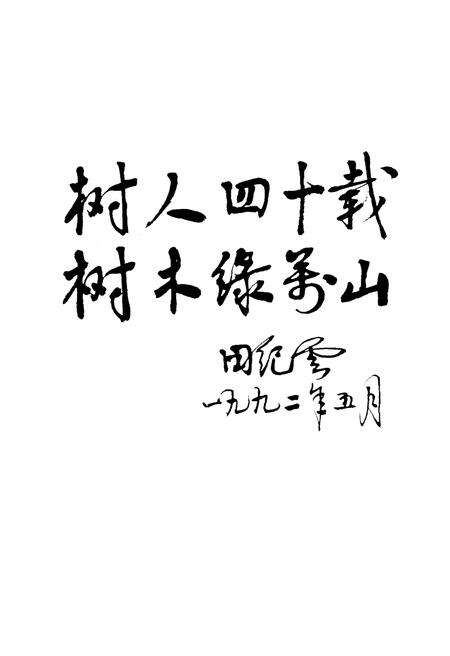 树人四十载
树木绿万山
田纪云
一九九二年五月